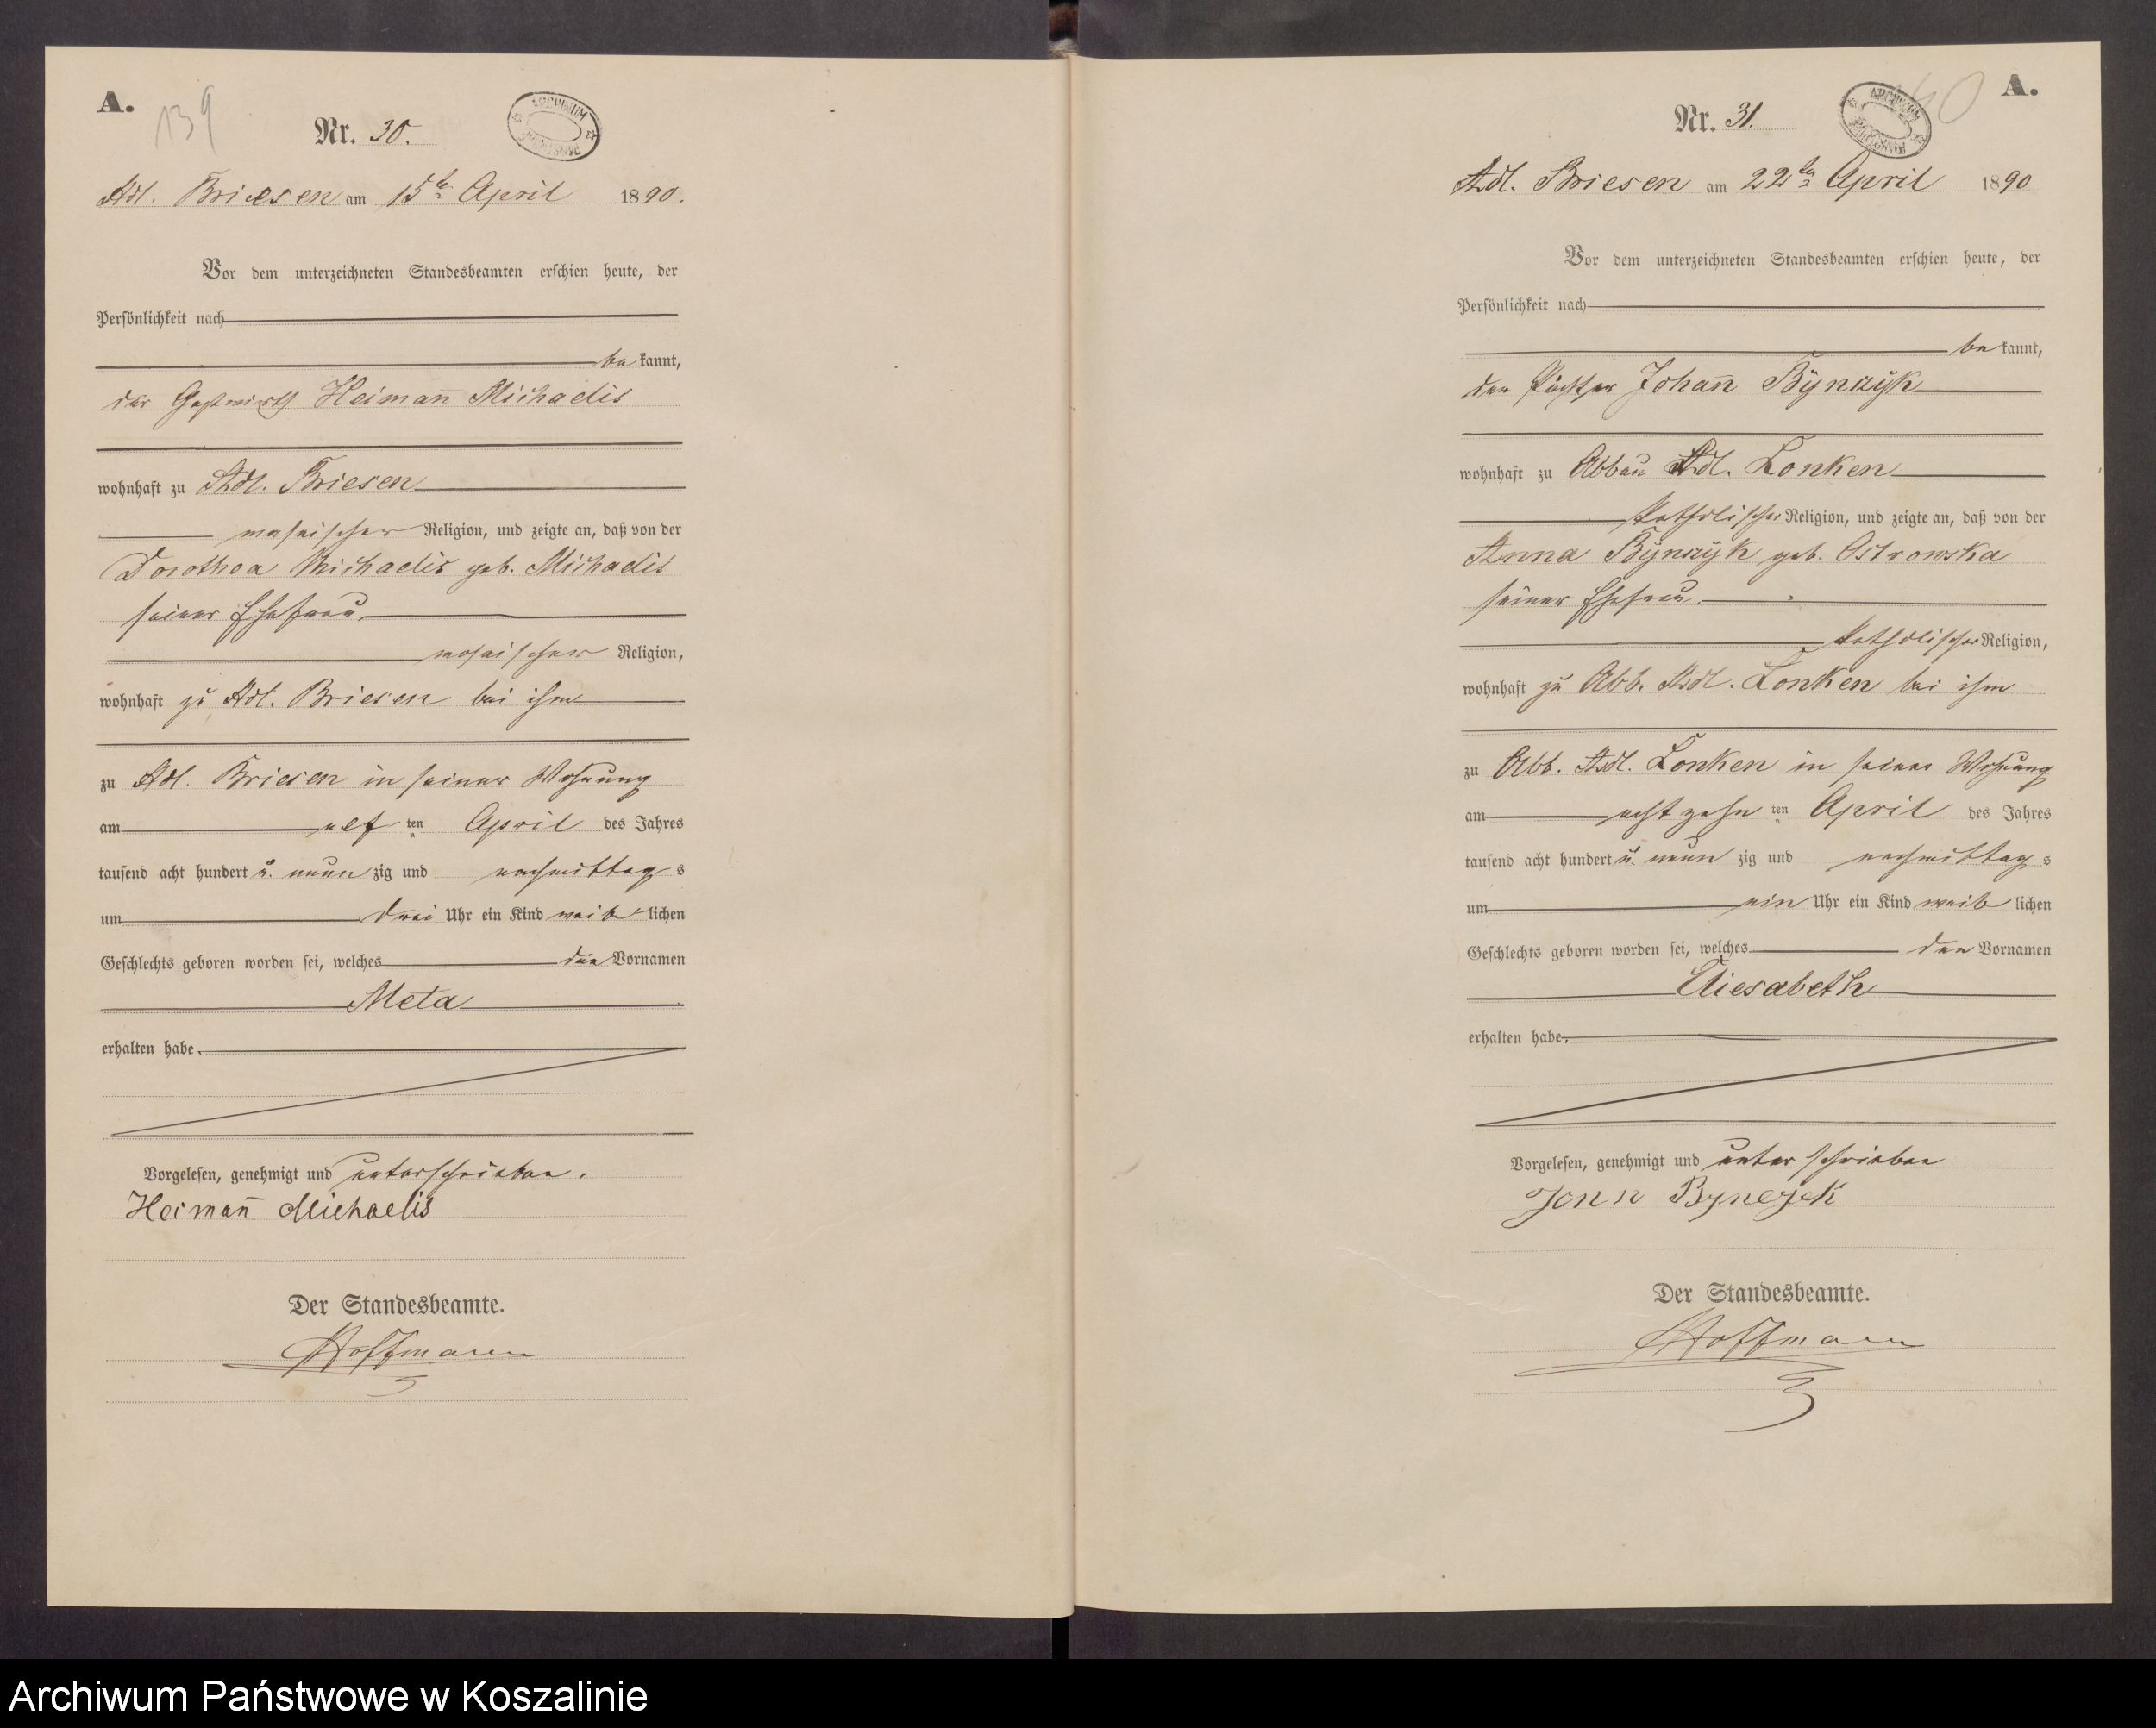 A.
139
Nr. 30.
ARCHIWUM
Adl. Briesen am 15ten April 1890.
Vor dem unterzeichneten Standesbeamten erschien heute, der
Persönlichkeit nach
be kannt,
der Gastwirth Heimañ Michaelis
wohnhaft zu Adl. Briesen
mosaischer Religion, und zeigte an, daß von der
Dorothea Michaelis geb. Michaelis
seiner Ehefrau
mosaischer Religion,
wohnhaft zu Adl. Briesen bei ihm
zu Adl. Briesen in seiner Wohnung
am elf ten April des Jahres
tausend acht hundert u. neun zig und nachmittag s
um drei Uhr ein Kind weib lichen
Geschlechts geboren worden sei, welches den Vornamen
Meta
erhalten habe.
Vorgelesen, genehmigt und unterschrieben.
Heimañ Michaelis
Der Standesbeamte.
Hoffmann
A.
Nr. 31.
ARCHIWUM
Adl. Briesen am 22ten April 1890
Vor dem unterzeichneten Standesbeamten erschien heute, der
Persönlichkeit nach
be kannt,
der Pächter Johañ Bynczyk
wohnhaft zu Abbau Adl. Lonken
katholischer Religion, und zeigte an, daß von der
Anna Bynczyk geb. Ostrowska
seiner Ehefrau.
katholischer Religion,
wohnhaft zu Abb. Adl. Lonken bei ihm
zu Abb. Adl. Lonken in seiner Wohnung
am acht zehn ten April des Jahres
tausend acht hundert u. neun zig und nachmittag s
um ein Uhr ein Kind weib lichen
Geschlechts geboren worden sei, welches den Vornamen
Eliesabeth
erhalten habe.
Vorgelesen, genehmigt und unterschrieben
Jonn Bynczek
Der Standesbeamte.
Hoffmann
Archiwum Państwowe w Koszalinie